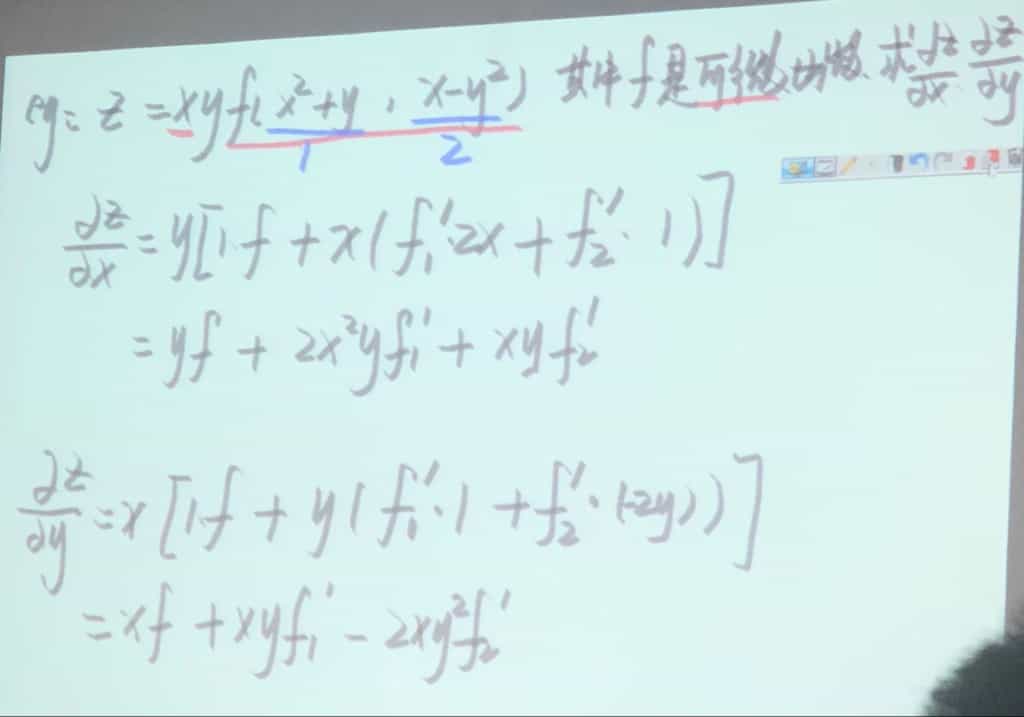 eg: z = xyf(x²+y, x-y²) 其中f是可微函数, 求∂z/∂x ∂z/∂y
1 2
∂z/∂x = y[1·f + x(f₁'·2x + f₂'·1)]
= yf + 2x²yf₁' + xyf₂'
∂z/∂y = x[1·f + y(f₁'·1 + f₂'·(-2y))]
= xf + xyf₁' - 2xy²f₂'